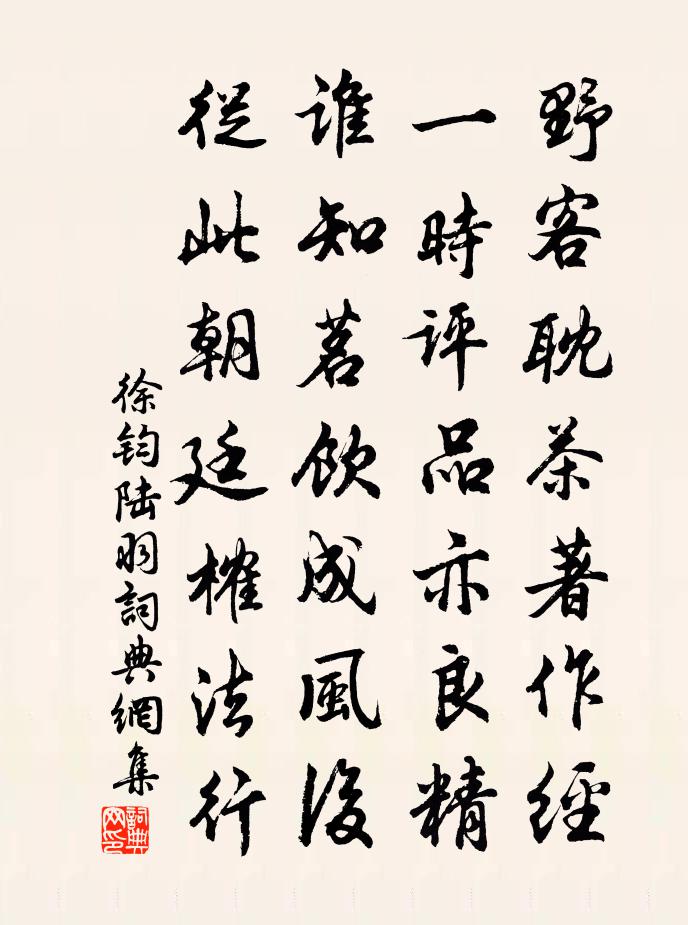 野客耽茶著作經
一時評品亦良精
誰知茗飲成風後
從此朝廷榷法行
徐鈞陆羽詞典網集
詞典網印